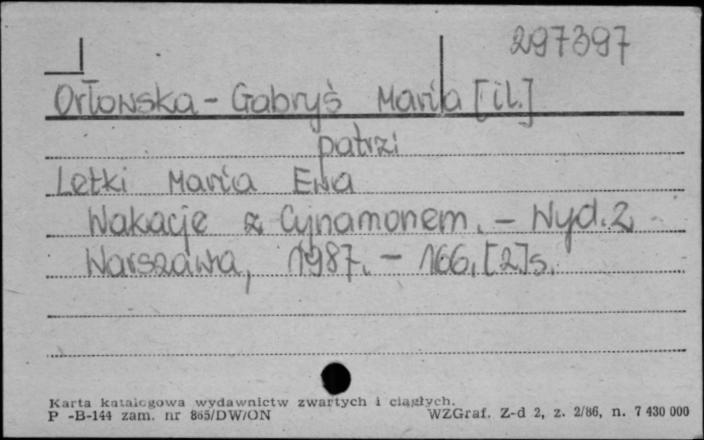 297397
Orłowska-Gabryś Maria [il.]
patrzi
Letki Maria Ewa
Wakacje z Cynamonem. - Wyd. 2
Warszawa, 1987. - 166, [2]s.
Karta katalogowa wydawnictw zwartych i ciągłych.
P -B-144 zam. nr 865/DW/ON WZGraf. Z-d 2, z. 2/86, n. 7 430 000